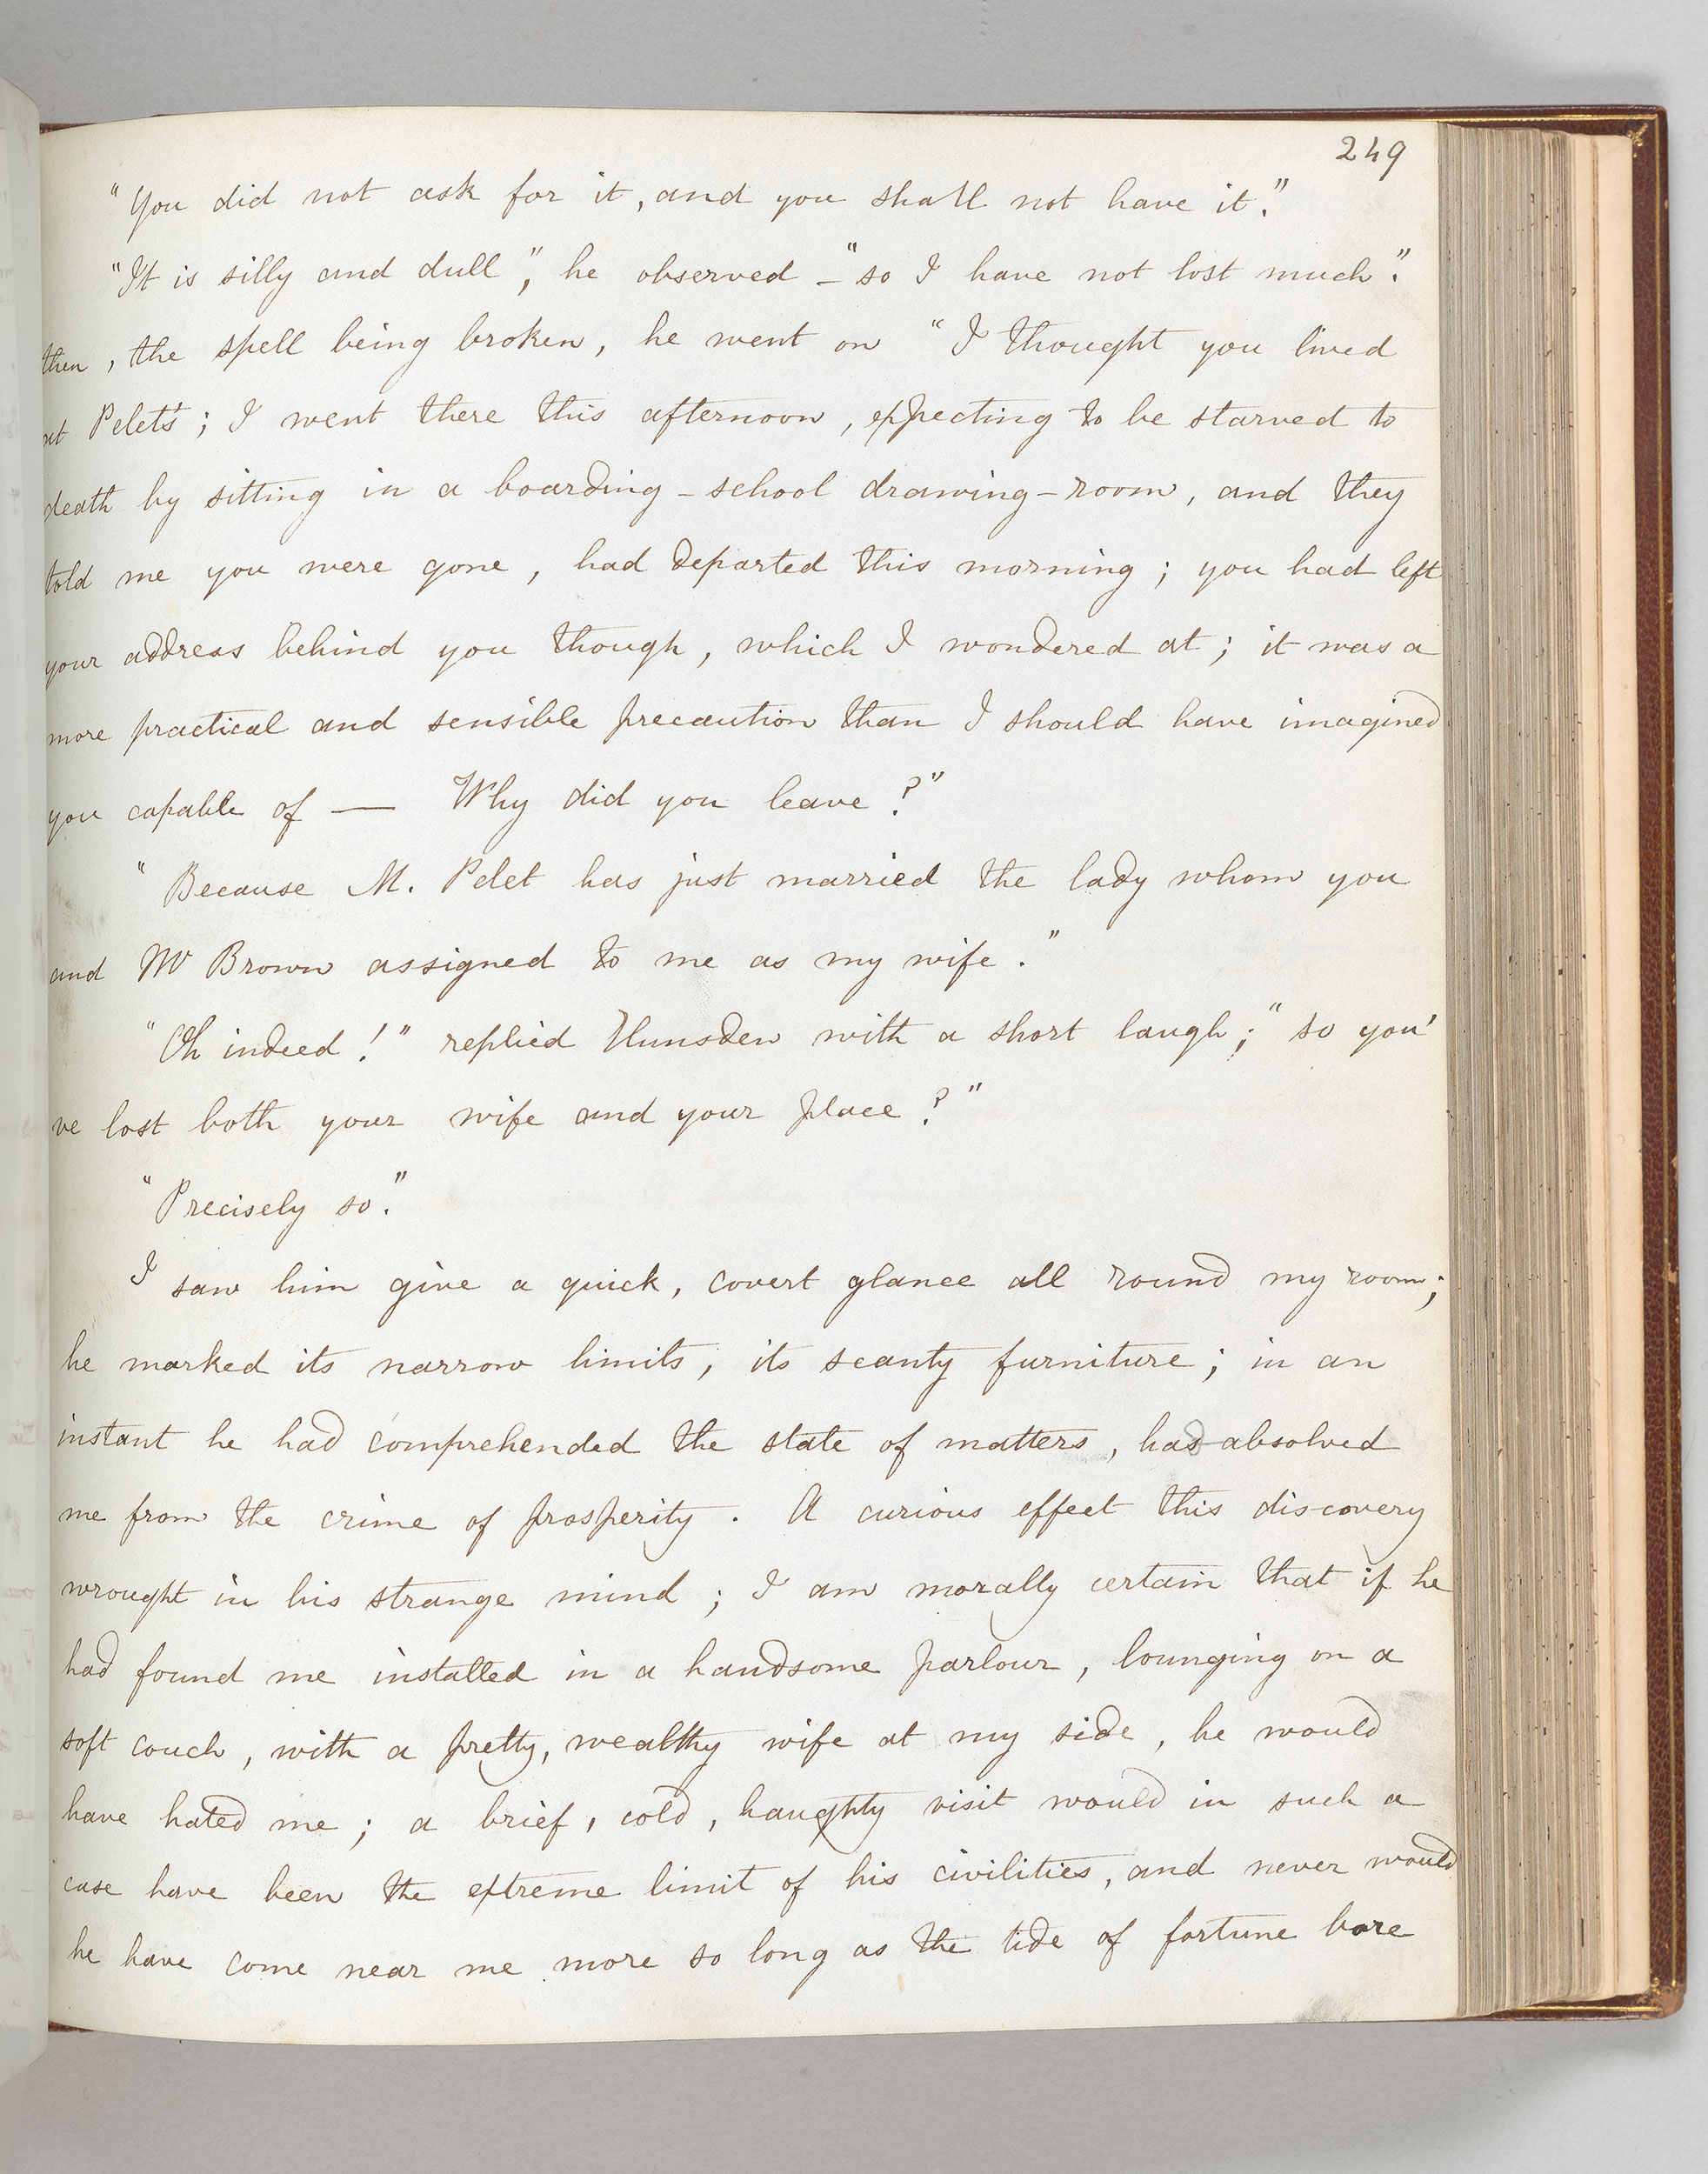 249
"You did not ask for it, and you shall not have it."
"It is silly and dull", he observed – "so I have not lost much".
then, the spell being broken, he went on "I thought you lived
at Pelet's; I went there this afternoon, expecting to be starved to
death by sitting in a boarding-school drawing-room, and they
told me you were gone, had departed this morning; you had left
your address behind you though, which I wondered at; it was a
more practical and sensible precaution than I should have imagined
you capable of — Why did you leave?"
"Because M. Pelet has just married the lady whom you
and Mr Brown assigned to me as my wife."
"Oh indeed!" replied Hunsden with a short laugh; "so you'
ve lost both your wife and your place?"
"Precisely so."
I saw him give a quick, covert glance all round my room;
he marked its narrow limits, its scanty furniture; in an
instant he had comprehended the state of matters, had absolved
me from the crime of prosperity. A curious effect this discovery
wrought in his strange mind; I am morally certain that if he
had found me installed in a handsome parlour, lounging on a
soft couch, with a pretty, wealthy wife at my side, he would
have hated me; a brief, cold, haughty visit would in such a
case have been the extreme limit of his civilities, and never would
he have come near me more so long as the tide of fortune bore